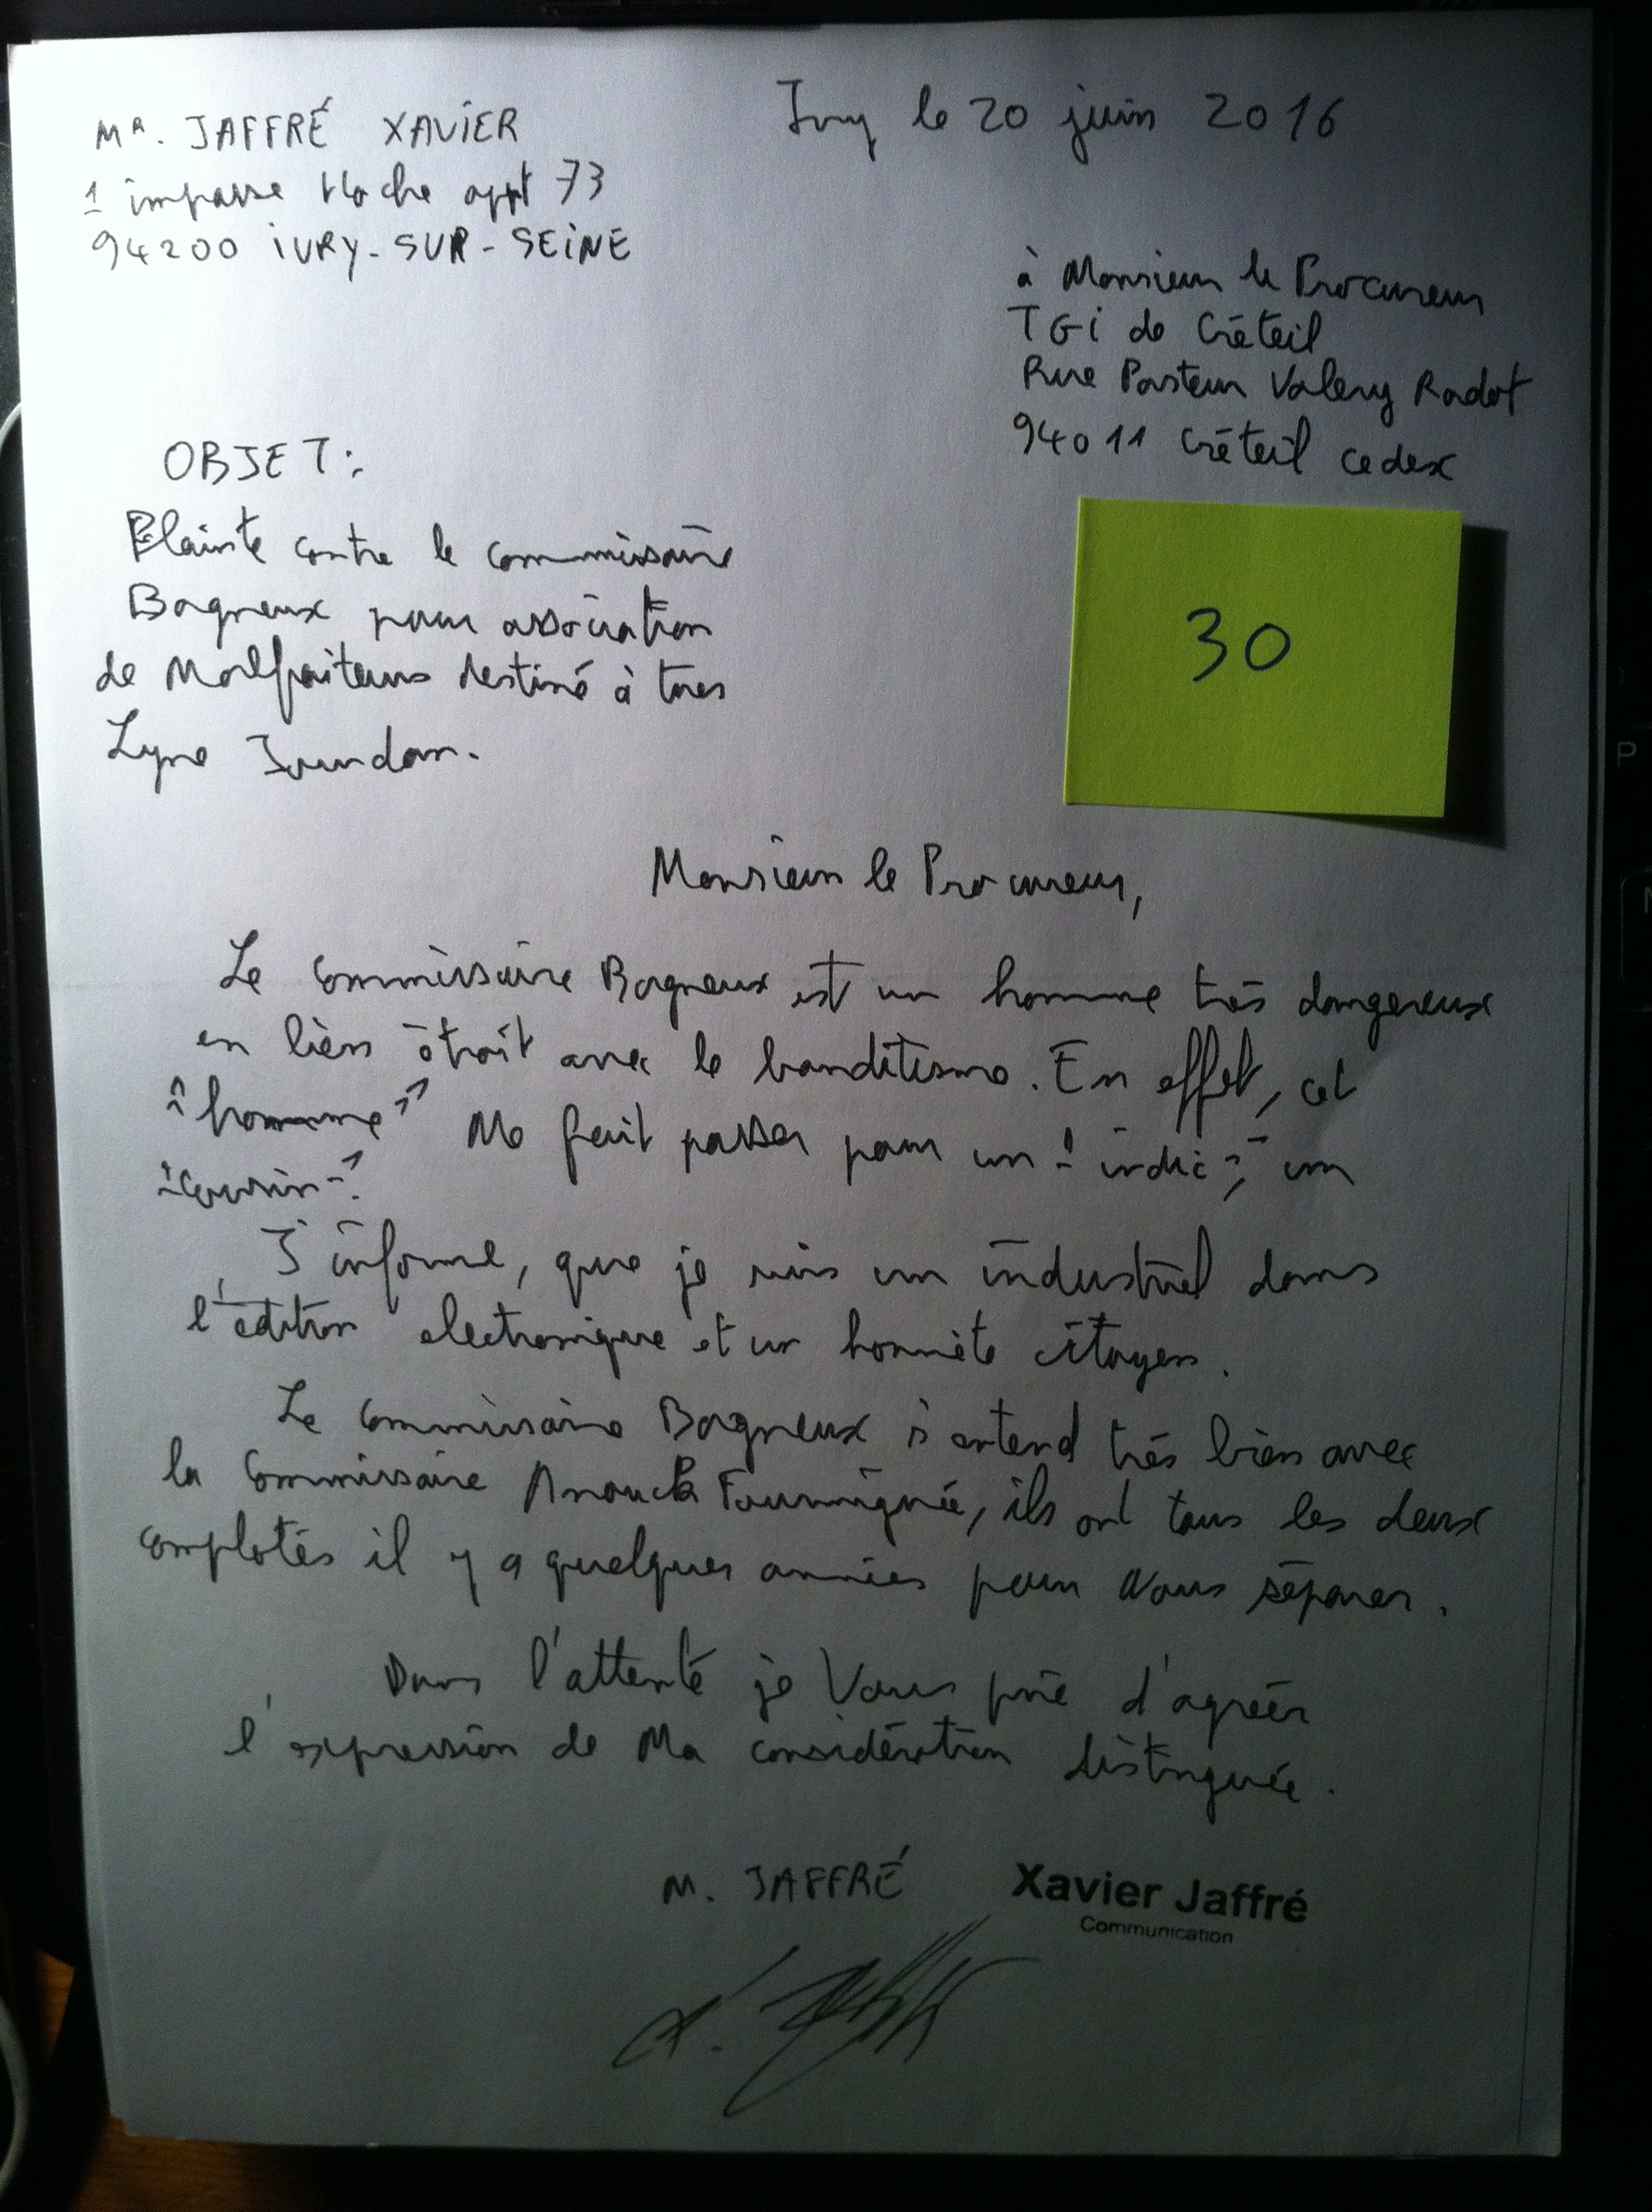 Mr. JAFFRÉ XAVIER
Ivry le 20 juin 2016
1 impasse Hoche appt 73
94200 IVRY-SUR-SEINE
à Monsieur le Procureur
TGI de Créteil
Rue Pasteur Valery Radot
94011 Créteil cedex
OBJET:
Plainte contre le commissaire
Bagneux pour association
de Malfaiteurs destiné à tuer
Lyne Jourdan.
30
Monsieur le Procureur,
Le Commissaire Bagneux est un homme très dangereux
en liens étroit avec le banditisme. En effet, cet
"homme" Me fait passer pour un "indic", un
"cousin".
J'informe, que je suis un industriel dans
l'édition electronique et un honnête citoyen.
Le Commissaire Bagneux s'entend très bien avec
la Commissaire Anouck Fourmignié, ils ont tous les deux
complotés il y a quelques années pour Nous séparer.
Dans l'attente je Vous prie d'agréer
l'expression de Ma considération distinguée.
M. JAFFRÉ
Xavier Jaffré
Communication